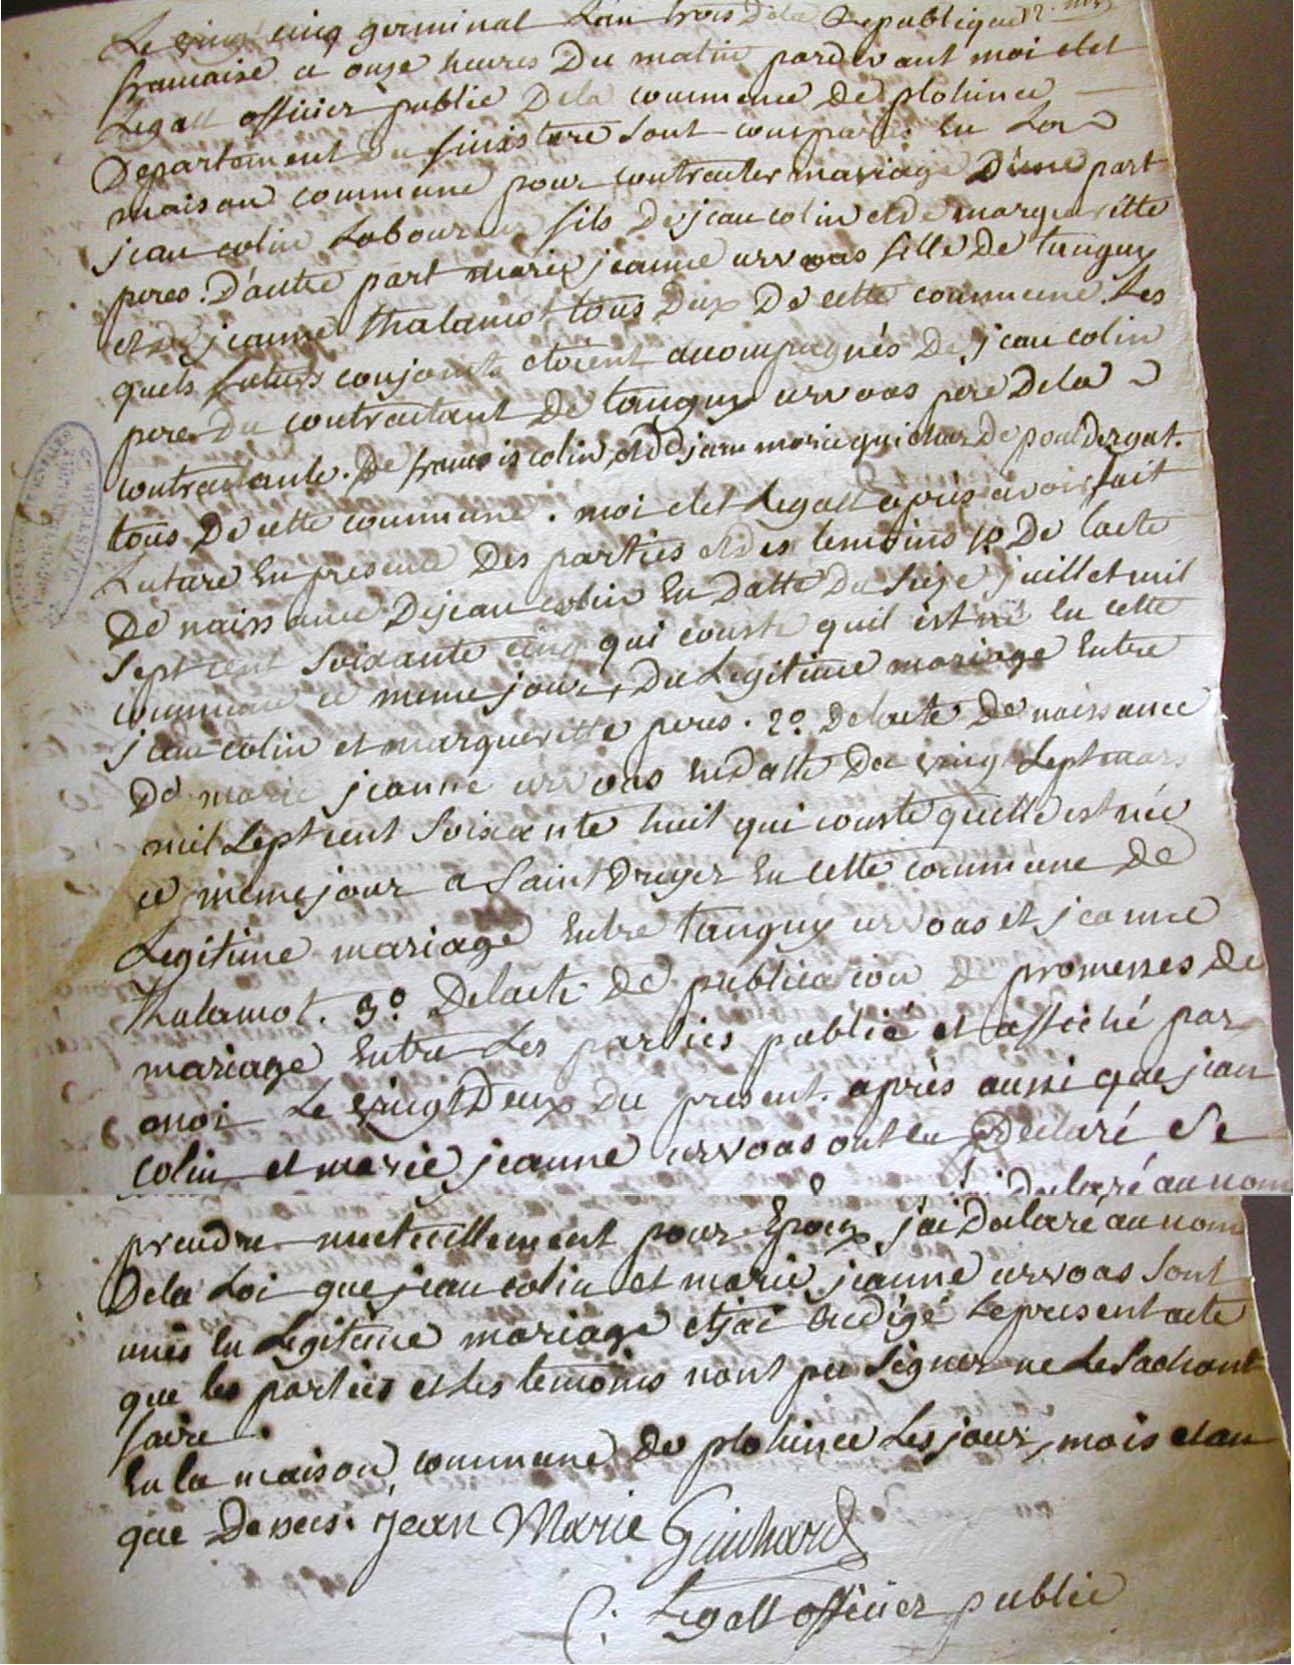 Le vingt cinq germinal Lan trois Dela Republique
francaise a onze heures Du matin pardevant moi clet
Legall officier public Dela commune De plohinec
Departement Du finistere Sont comparus En La
maison commune pour contracter mariage D'une part
jean colin Laboureur fils De jean colin et de margueritte
peres. D'autre part marie jeanne urvoas fille De tanguy
et de jeanne thalamot tous Deux De cette commune. Les
quels futurs conjoints etoient accompagnés De jean colin
pere Du contractant De tanguy urvoas père Dela
contractante. De francois colin, et De jean marie guichar De pouldergat.
tous De cette commune. moi clet Legall après avoir fait
Lecture En presence Des parties et des temoins 1º De lacte
De naissance De jean colin En Datte Du Seize juillet mil
Sept cent Soixante cinq qui conste quil est né En cette
commune ce meme jour, Du Legitime mariage Entre
jean colin et margueritte peres. 2º. De lacte De naissance
De marie jeanne urvoas En datte Du vingt Sept mars
mil Sept cent Soixante huit qui conste quelle est née
ce meme jour a Saint Dreyer En cette commune De
Legitime mariage Entre tanguy urvoas et jeanne
thalamot. 3º. De lacte De publication De promesses De
mariage Entre Les parties publié et affiché par
moi Le vingt Deux du present. après aussi que jean
colin et marie jeanne urvoas ont eu Declaré Se
Declaré au nom
prendre mutuellement pour Epoux, j'ai Declaré au nom
Dela Loi que jean colin et marie jeanne urvoas Sont
unis En Legitime mariage et j'ai Redigé Le present acte
que les parties et Les temoins nont pu Signer ne Le Sachant
faire.
En la maison commune De plohinec Les jour, mois et an
que Dessus. Jean Marie Guichard
C: Legall officier public